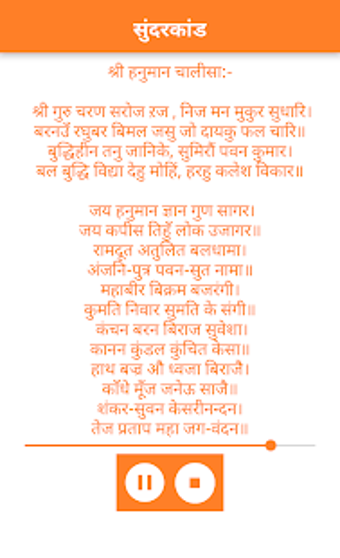 सुंदरकांड
श्री हनुमान चालीसा:-
श्री गुरु चरण सरोज रज , निज मन मुकुर सुधारि।
बरनउँ रघुबर बिमल जसु जो दायकु फल चारि॥
बुद्धिहीन तनु जानिके, सुमिरौं पवन कुमार।
बल बुद्धि विद्या देहु मोहिं, हरहु कलेश विकार॥
जय हनुमान ज्ञान गुण सागर।
जय कपीस तिहुँ लोक उजागर॥
रामदूत अतुलित बलधामा।
अंजनि-पुत्र पवन-सुत नामा॥
महाबीर बिक्रम बजरंगी।
कुमति निवार सुमति के संगी॥
कंचन बरन बिराज सुवेशा।
कानन कुंडल कुंचित केसा॥
हाथ बज्र औ ध्वजा बिराजै।
काँधे मूँज जनेऊ साजै॥
शंकर-सुवन केसरीनन्दन।
तेज प्रताप महा जग-वंदन॥